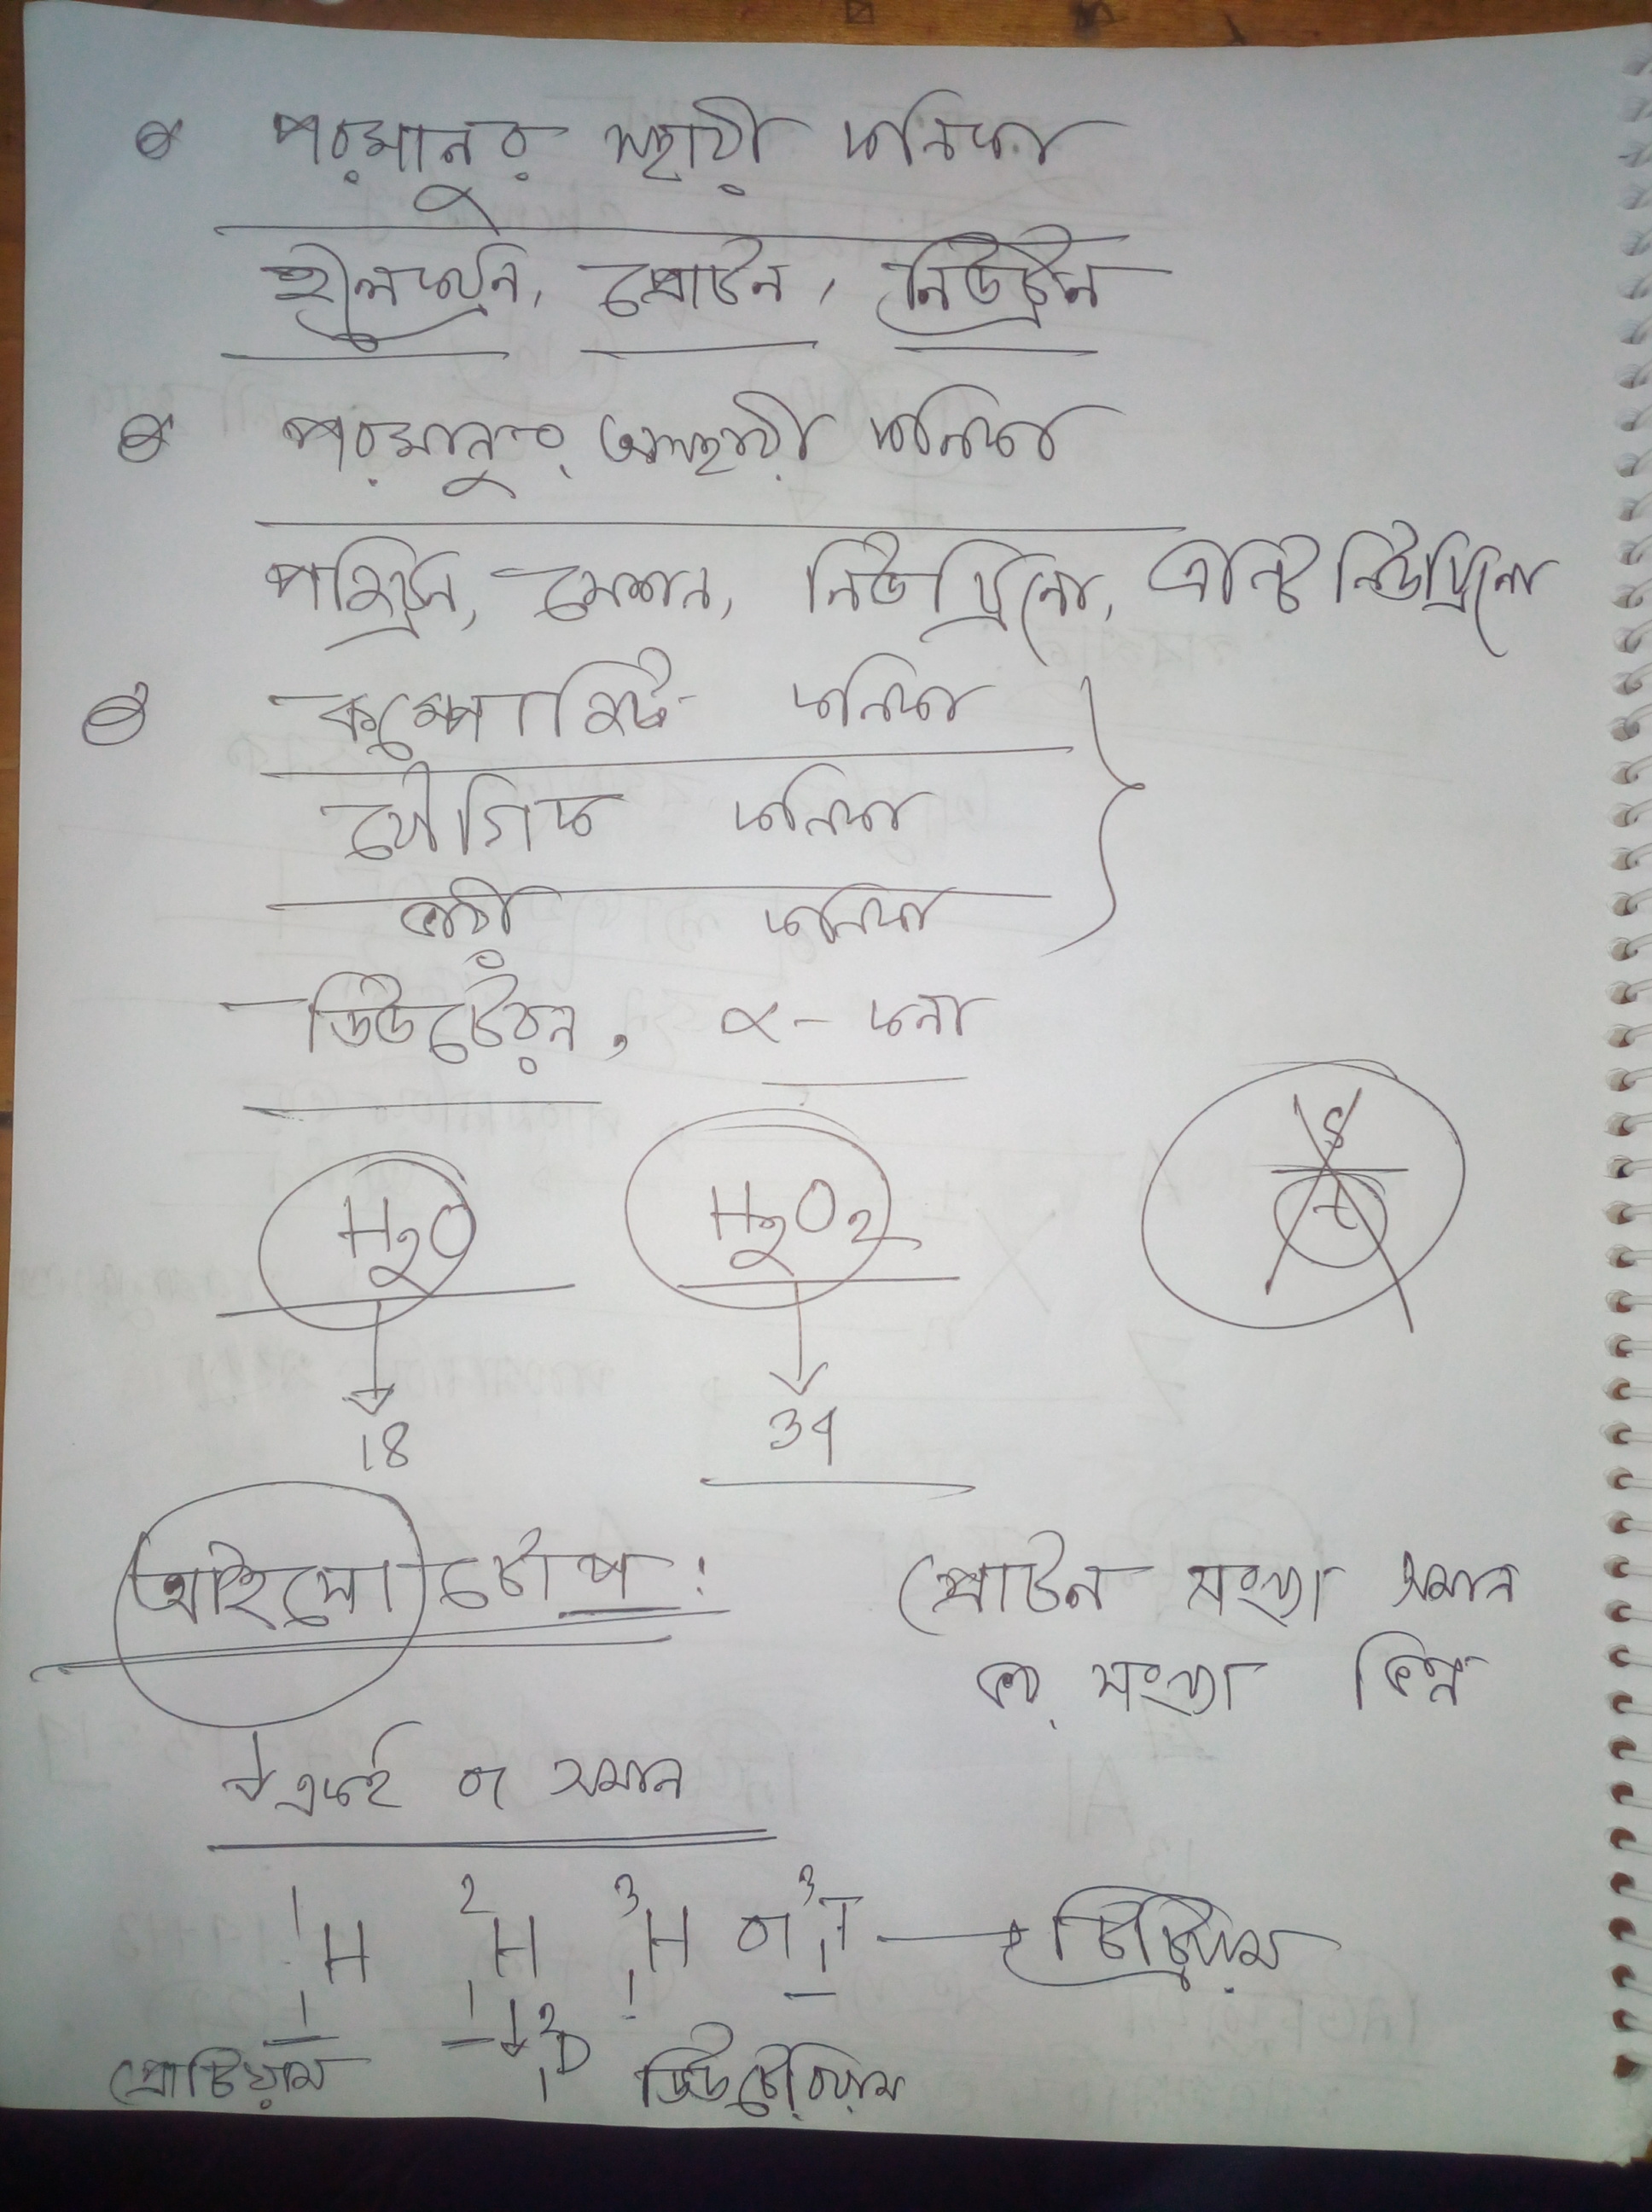 পরমানুর স্থায়ী কনিকা
ইলেকট্রন, প্রোটন, নিউট্রন
পরমানুর অস্থায়ী কনিকা
পজিট্রন, মেশন, নিউট্রিনো, এন্টি নিউট্রিনো
কম্পোজিট কনিকা
যৌগিক কনিকা
ভারী কনিকা
ডিউটেরন, α- কনা
H₂O H₂O₂
18 34
আইসোটোপ: প্রোটন সংখ্যা সমান
ভর সংখ্যা ভিন্ন
একই বা সমান
¹₁H ²₁H ³₁H বা ³₁T → ট্রিটিয়াম
প্রোটিয়াম ²₁D ডিউটেরিয়াম